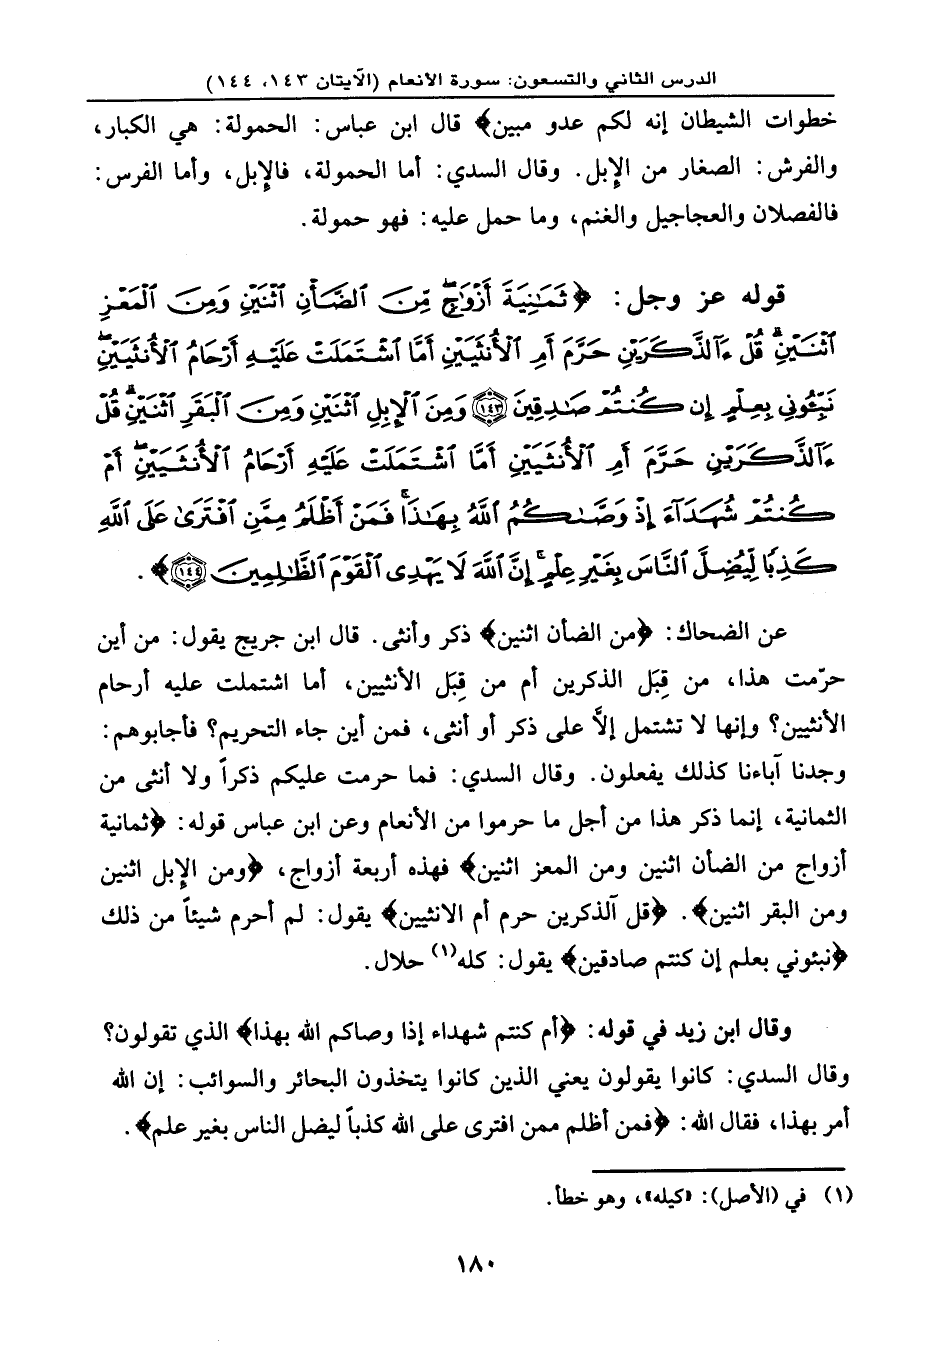 الدرس الثاني والتسعون: سورة الأنعام (الآيتان ١٤٣، ١٤٤)
خطوات الشيطان إنه لكم عدو مبين﴾ قال ابن عباس: الحمولة: هي الكبار،
والفرش: الصغار من الإبل. وقال السدي: أما الحمولة، فالإبل، وأما الفرس:
فالفصلان والعجاجيل والغنم، وما حمل عليه: فهو حمولة.
قوله عز وجل: ﴿ثَمَٰنِيَةَ أَزْوَٰجٍۖ مِّنَ ٱلضَّأْنِ ٱثْنَيْنِ وَمِنَ ٱلْمَعْزِ
ٱثْنَيْنِۗ قُلْ ءَآلذَّكَرَيْنِ حَرَّمَ أَمِ ٱلْأُنثَيَيْنِ أَمَّا ٱشْتَمَلَتْ عَلَيْهِ أَرْحَامُ ٱلْأُنثَيَيْنِۖ
نَبِّـُٔونِي بِعِلْمٍ إِن كُنتُمْ صَٰدِقِينَ ١٤٣ وَمِنَ ٱلْإِبِلِ ٱثْنَيْنِ وَمِنَ ٱلْبَقَرِ ٱثْنَيْنِۗ قُلْ
ءَآلذَّكَرَيْنِ حَرَّمَ أَمِ ٱلْأُنثَيَيْنِ أَمَّا ٱشْتَمَلَتْ عَلَيْهِ أَرْحَامُ ٱلْأُنثَيَيْنِۖ أَمْ
كُنتُمْ شُهَدَآءَ إِذْ وَصَّىٰكُمُ ٱللَّهُ بِهَٰذَاۚ فَمَنْ أَظْلَمُ مِمَّنِ ٱفْتَرَىٰ عَلَى ٱللَّهِ
كَذِبًا لِّيُضِلَّ ٱلنَّاسَ بِغَيْرِ عِلْمٍۚ إِنَّ ٱللَّهَ لَا يَهْدِى ٱلْقَوْمَ ٱلظَّٰلِمِينَ ١٤٤﴾.
عن الضحاك: ﴿من الضأن اثنين﴾ ذكر وأنثى. قال ابن جريج يقول: من أين
حرّمت هذا، من قِبَل الذكرين أم من قِبَل الأنثيين، أما اشتملت عليه أرحام
الأنثيين؟ وإنها لا تشتمل إلاَّ على ذكر أو أنثى، فمن أين جاء التحريم؟ فأجابوهم:
وجدنا آباءنا كذلك يفعلون. وقال السدي: فما حرمت عليكم ذكراً ولا أنثى من
الثمانية، إنما ذكر هذا من أجل ما حرموا من الأنعام وعن ابن عباس قوله: ﴿ثمانية
أزواج من الضأن اثنين ومن المعز اثنين﴾ فهذه أربعة أزواج، ﴿ومن الإبل اثنين
ومن البقر اثنين﴾. ﴿قل آلذكرين حرم أم الانثيين﴾ يقول: لم أحرم شيئاً من ذلك
﴿نبئوني بعلم إن كنتم صادقين﴾ يقول: كله(١) حلال.
وقال ابن زيد في قوله: ﴿أم كنتم شهداء إذا وصاكم الله بهذا﴾ الذي تقولون؟
وقال السدي: كانوا يقولون يعني الذين كانوا يتخذون البحائر والسوائب: إن الله
أمر بهذا، فقال الله: ﴿فمن أظلم ممن افترى على الله كذباً ليضل الناس بغير علم﴾.
(١) في (الأصل): «كيله»، وهو خطأ.
١٨٠